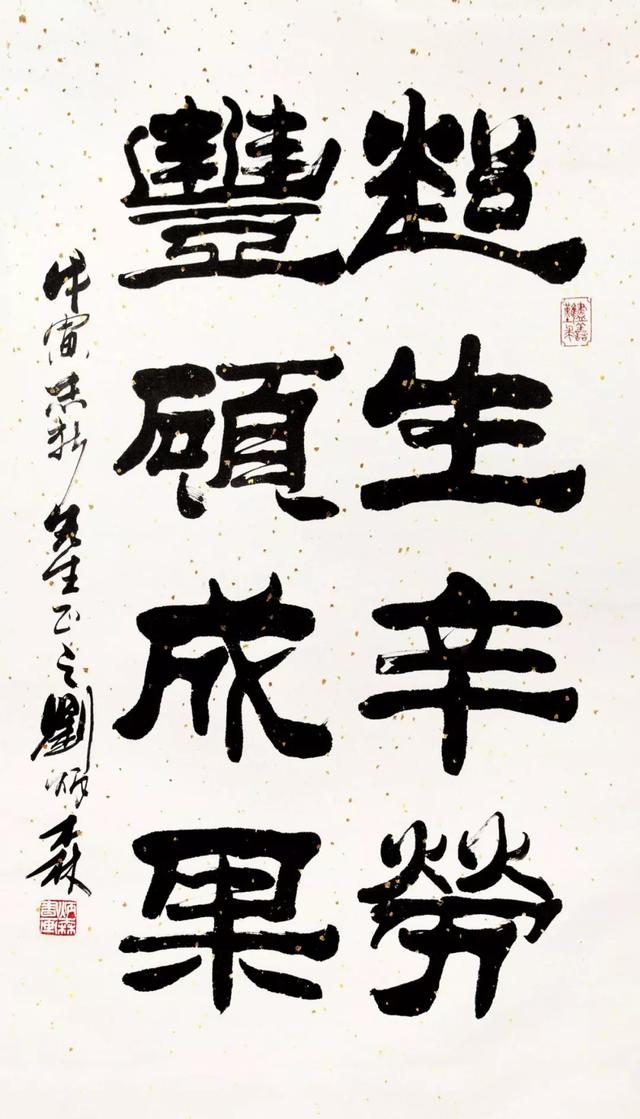 超生辛勞
豐碩成果
戊寅 先生正之劉炳森